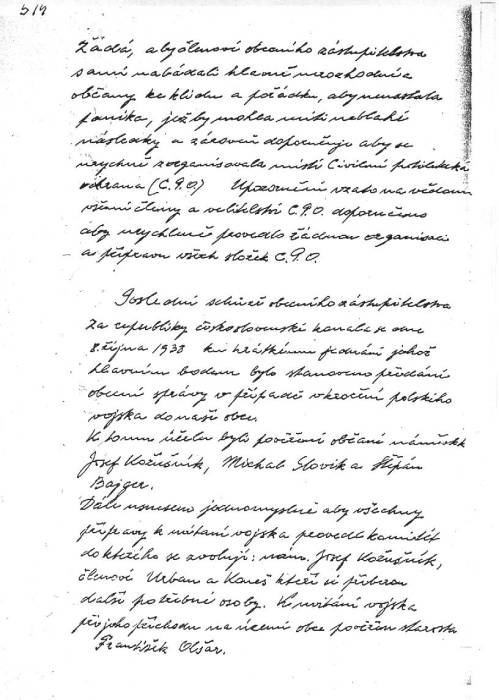 519
Žádá, aby členové obecního zastupitelstva
sami nabádali hlavně nerozhodné
občany ke klidu a pořádku, aby nenastala
panika, jež by mohla míti neblahé
následky a zároveň doporučuje aby se
urychleně zorganisovala místní Civilní protiletecká
ochrana (C.P.O.) Upozornění vzato na vědomí
všemi členy a velitelství C.P.O. doporučeno
aby urychleně provedlo žádnou organisaci
a přípravu všech složek C.P.O.
Poslední schůze obecního zastupitelstva
za republiky československé konala se dne
8. října 1938 ku krátkému jednání jehož
hlavním bodem bylo stanoveno předání
obecní správy v případě vkročení polského
vojska do naší obce.
K tomu účelu byli pověřeni občané náměstek
Josef Kožušník, Michal Slovik a Štěpán
Bajger.
Dále usneseno jednomyslně aby všechny
přípravy k uvítání vojska provedl komitét
do kterého se zvolují: nám. Josef Kožušník,
členové Urban a Kareš kteří si přiberou
další potřebné osoby. K uvítání vojska
při jeho příchodu na území obce pověřen starosta
František Olšar.